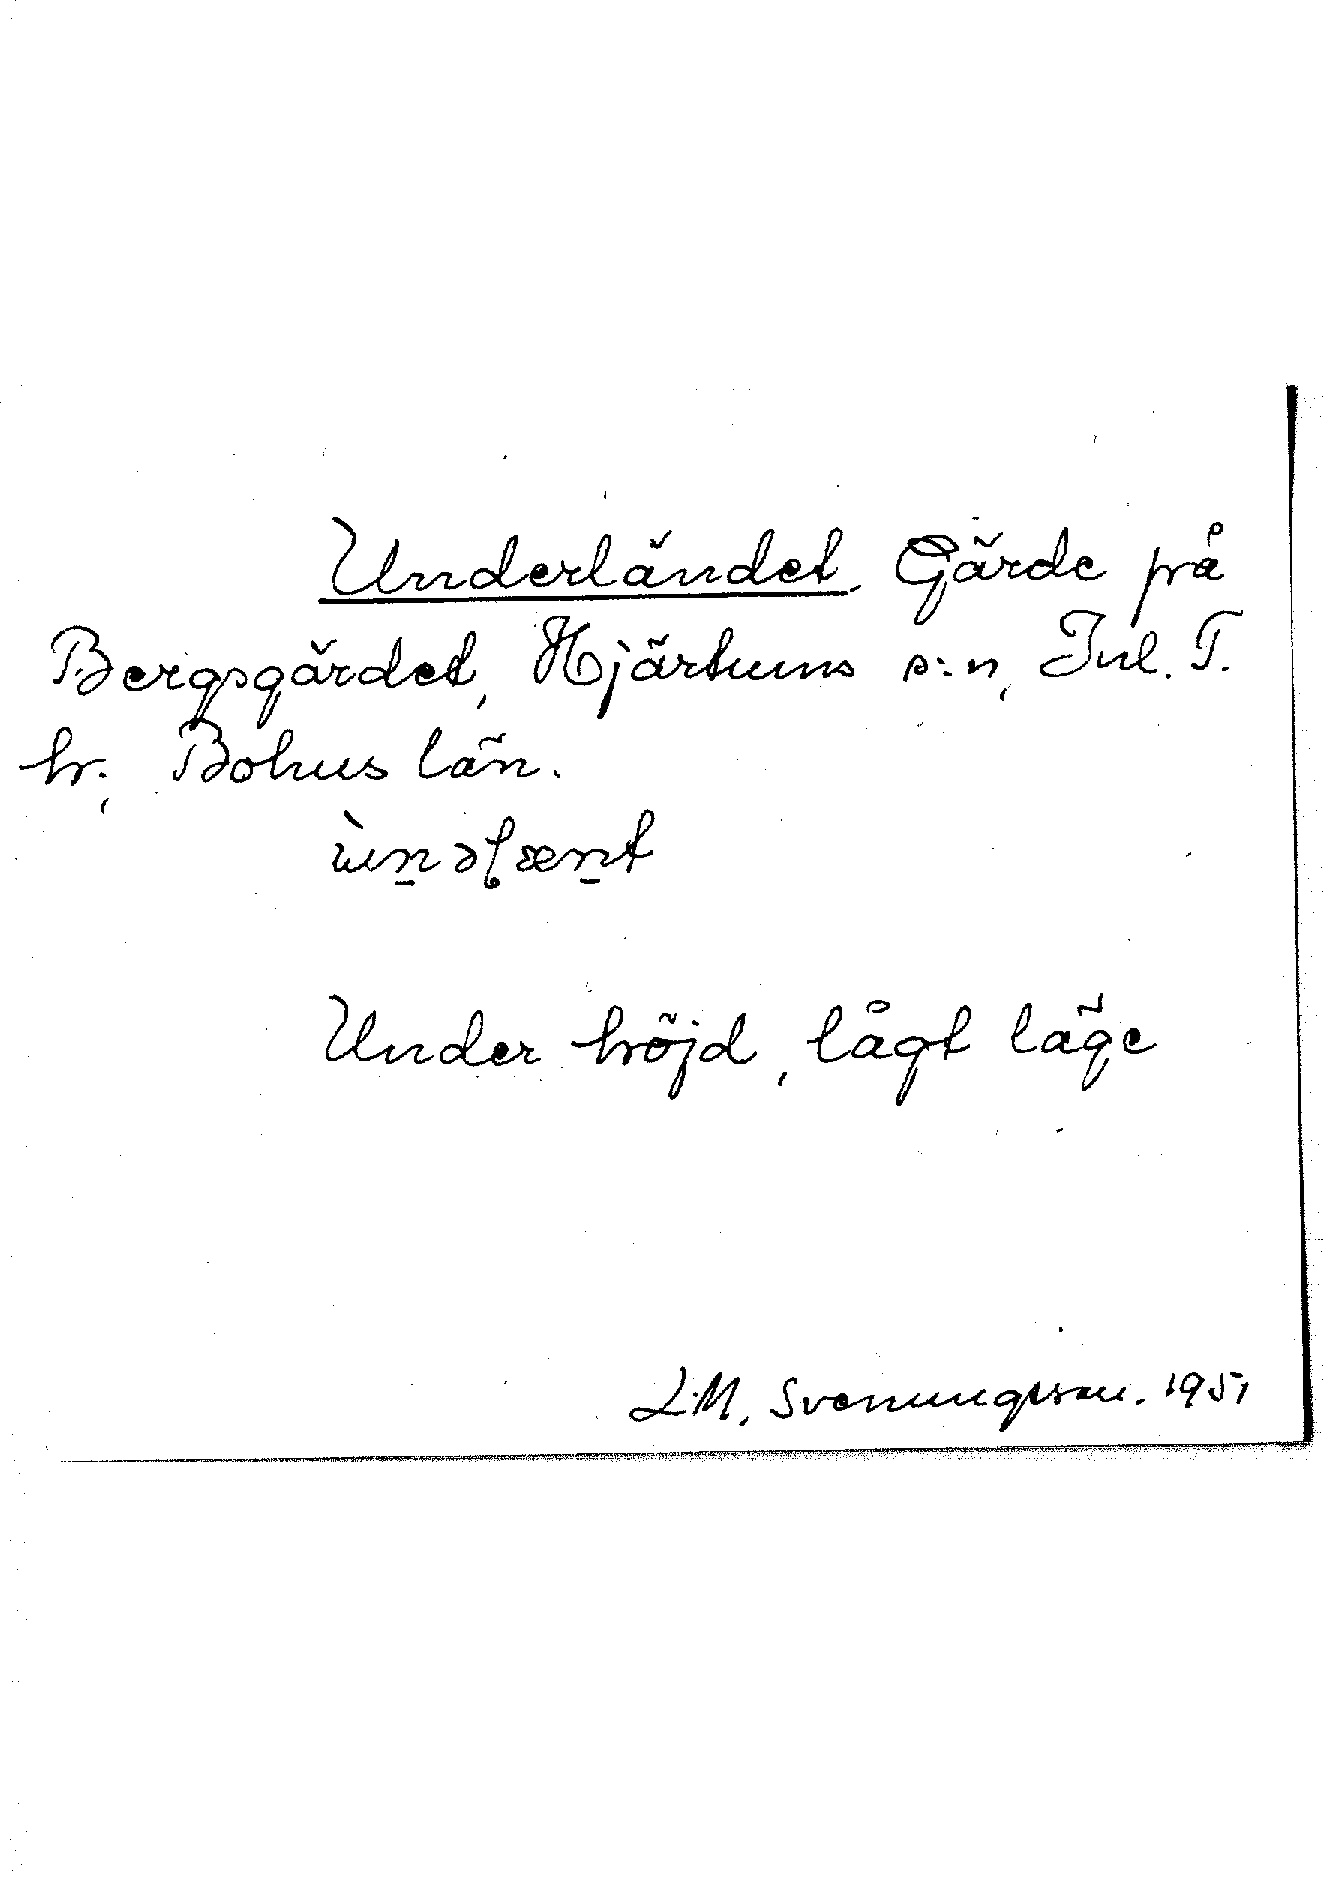 Underländet. Gärde på
Bergsgärdet, Hjärtums s:n, Inl. T.
hr., Bohus län.
ùn̲əɭæn̲t
Under höjd, lågt läge
L.M. Svenungsson. 1951